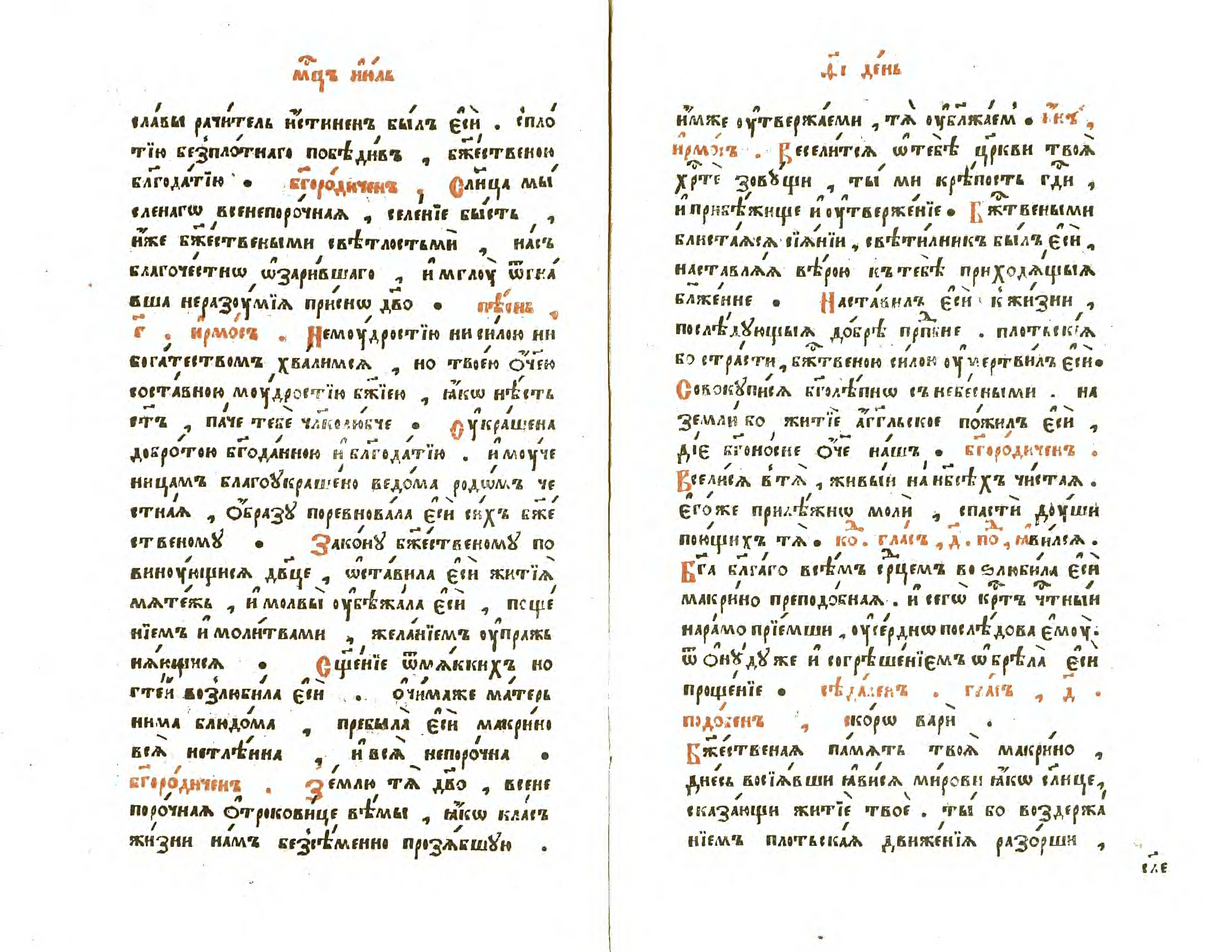 мц҃ъ ию́ль
сла́вы рачи́тель и҆́стиненъ бы́лъ є҆сѝ . спло
тїю безпло́тнаго побѣди́въ , бж҃ественою
блгода́тїю • бг҃оро́диченъ , Сл҃нца мы́
сленагѡ всенепоро́чная , селе́нїе бы́сть ,
и҆́же бж҃ествеными свѣ́тлостьмѝ , на́съ
благоче́стнѡ ѡ҆зари́вшаго , и҆ мглоу̀ ѿгна́
вша неразоу́мїя при́снѡ дв҃о • пѣ́снь ,
г҃ . і҆рмо́съ . Немоу́дростїю ни си́лою ни
бога́тествомъ хва́лимся , но твое́ю ѻ҆́ч҃ею
соста́вною моу́дростїю бж҃їею , ꙗ҆́кѡ нѣ́сть
ст҃ъ , па́че тебѐ чл҃колю́бче • Оу҆кра́шена
добро́тою бг҃ода́нною и҆ блгода́тїю . и҆ моу́че
ницамъ благоꙋкраше́но ве́дома родѡ́мъ че
стна́я , ѻ҆́бразꙋ поревнова́ла є҆сѝ си́хъ бж҃е
ственомꙋ • Зако́нꙋ бж҃е́ственомꙋ по
виноу́ющися дв҃це , ѡ҆ста́вила є҆сѝ житїѧ̀
мяте́жь , и҆ молвы̀ оу҆бѣжа́ла є҆сѝ , поще́
нїемъ и҆ моли́твами , жела́нїемъ оу҆пражь
ня́ющися • Сп҃ще́нїе ѿ мя́ккихъ но
гте́й возлюби́ла є҆сѝ . ѻ҆чи́маже ма́терь
нима блюдо́ма , пребыла̀ є҆сѝ макри́но
вся̀ нетлѣ́нна , и҆ вся̀ непоро́чна •
бг҃оро́диченъ . Зе́млю тѧ̀ дв҃о , всене
поро́чная ѻ҆трокови́це вѣ́мы , ꙗ҆́кѡ кла́съ
жи́зни на́мъ безсѣ́менно прозя́бшꙋю .
а҃і де́нь
и҆́мже оу҆твержа́еми , тѧ̀ оу҆бл҃жа́ем̾ • и҆нъ̀ ,
і҆рмо́съ . Весели́тся ѡ҆ тебѣ̀ цр҃кви твоѧ̀
хрⷭ҇тѐ зовꙋ́щи , ты́ ми крѣ́пость гдⷭ҇и ,
и҆ прибѣ́жище и҆ оу҆твержде́нїе • Бжⷭ҇твеными
блиста́яся сїя́нїи , свѣти́лникъ бы́лъ є҆сѝ ,
наставля́я вѣ́рою къ тебѣ̀ приходя́щыя
бл҃же́нне • Наста́вилъ є҆сѝ к жи́зни ,
послѣ́дꙋющыя до́брѣ прпⷣбне . пло́тьскїя
бо стра́сти , бжⷭ҇твеною си́лою оу҆мертви́лъ є҆сѝ •
Совокꙋпи́ся бг҃олѣ́пнѡ с небе́сными . на
земли́ бо житїѐ а҆́гг҃льское пожи́лъ є҆сѝ ,
ді́е бг҃оно́сне ѻ҆́ч҃е на́шъ • бг҃оро́диченъ .
Всели́ся в тѧ̀ , живы́й на нб҃сѣ́хъ чи́стая .
є҆го́же приле́жнѡ молѝ , спастѝ доу́ши
пою́щихъ тѧ̀ • ко̀ . гла́съ , д҃ . по , ꙗ҆ви́лся .
Бг҃а бл҃га́го всѣ́мъ ср҃цемъ возлюби́ла є҆сѝ
макри́но преподо́бная . и҆ сегѡ̀ крⷭ҇тъ чⷭ҇тны́й
нара́мо прїе́мши , оу҆се́рднѡ послѣ́дова є҆моу̀ .
ѿ ѻ҆нꙋ́дꙋже и҆ согрѣше́нїємъ ѡ҆брѣла̀ є҆сѝ
проще́нїе • сѣда́ленъ . гла́съ , д҃ .
подо́бенъ , ско́рѡ варѝ .
Бж҃е́ственая па́мять твоѧ̀ макри́но ,
дне́сь восїя́вши ꙗ҆ви́ся ми́рови ꙗ҆́кѡ сл҃нце ,
ска́зающи житїѐ твоѐ . ты́ бо воздержа́
нїемъ пло́тьская движе́нїя разо́рши ,
сле